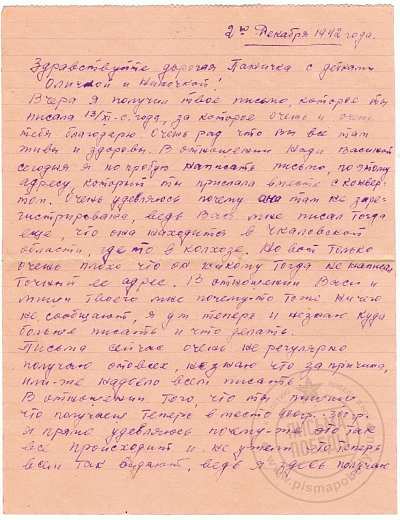 2го Декабря 1942 года.
Здравствуйте дорогая Паничка с детками
Оличкой и Ниночкой!
Вчера я получил твое письмо, которое ты
писала 13/XI-с.года, за которое очень и очень
тебя благодарю очень рад что Вы все там
живы и здоровы. В отношении Нади Васиной
сегодня я попробую написать письмо, по этому
адресу, который ты прислала вместе с конвер-
том. Очень удивляюсь почему она там не заре-
гистрирована, ведь Вася мне писал тогда
еще, что она находится в Чкаловской
области, где то в колхозе. Но вот только
очень плохо что он никому тогда не написал
точный ее адрес. В отношении Васи и
Миши твоего мне почему-то тоже ничего
не сообщают, я уж теперь и незнаю куда
больше писать и что делать.
Письма сейчас очень не регулярно
получаю от всех, незнаю что за причина,
или-же надоело всем писать.
В отношении того, что ты пишешь
что получаеш теперь в место
Я прямо удивляюсь почему-то это так
все происходит и не
всем так выдают, ведь я здесь получаю
ПИСЬМА ПОБЕДЫ
www.pismapobedy.ru